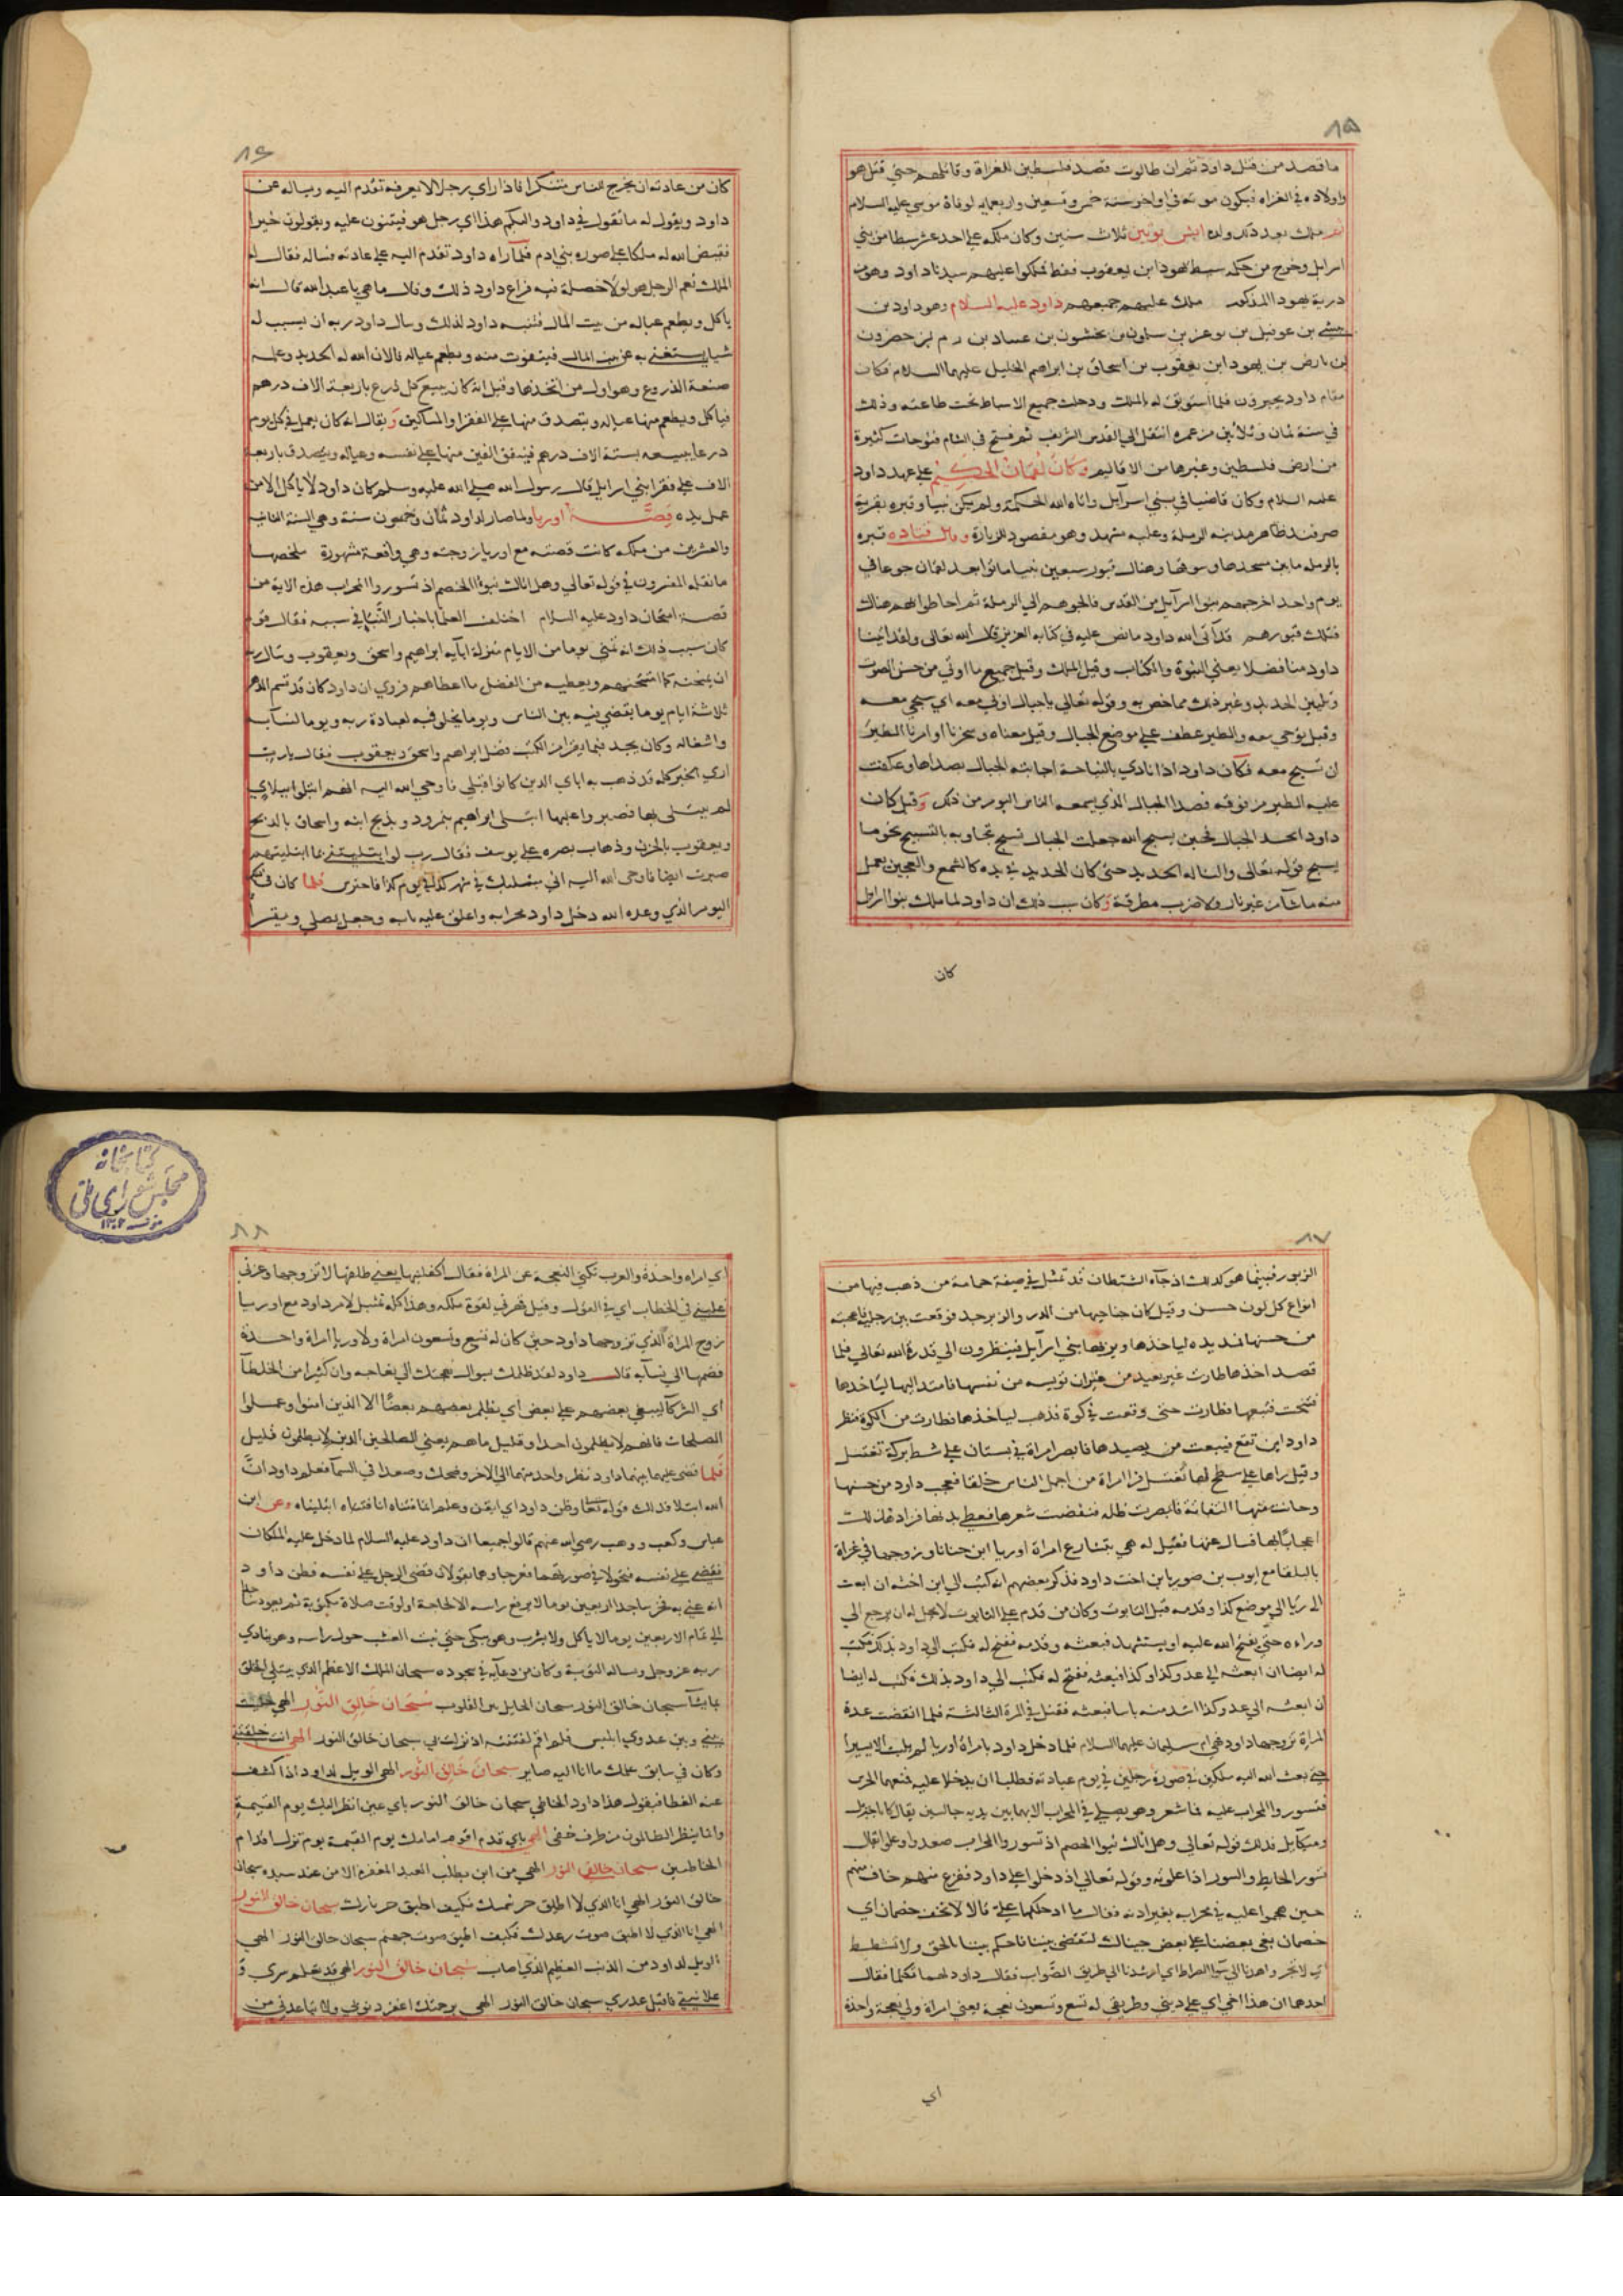 ٨٥
ما قصد من قتل داود ثم ان طالوت قصد فلسطين للغزاة وقاتلهم حتي قتل هو
واولاده في الغزاه فيكون موته في اواخر سنة خمس وتسعين واربعمايه لوفاة موسي عليه السلام
ثم ملك بعد ذلك ولده ايش بوشت ثلاث سنين وكان ملكه علي احد عشر سبطا من بني
اسرايل وخرج من حكمه سبط يهودا ابن يعقوب فقط فملكوا عليهم سيدنا داود وهو من
ذرية يهودا المذكور ملك عليهم جميعهم داود عليه السلام وهو داود بن
بيشي بن عوفيل بن بوعز بن سلمون بن نخشون بن عميناد بن رم بن حصرون
بن بارص بن يهودا بن يعقوب بن اسحاق بن ابراهيم الخليل عليهما السلام فكان
مقام داود بحبرون فلما استوثق له الملك ودخلت جميع الاسباط تحت طاعته وذلك
في سنة ثمان وثلاثين من عمره انتقل الي القدس الشريف ثم فتح في الشام فتوحات كثيرة
من ارض فلسطين وغيرها من الاقاليم وكان لقمان الحكيم علي عهد داود
عليه السلام وكان قاضيا في بني اسرايل واتاه الله الحكمة ولم يكن نبيا وقبره بقرية
صرفند ظاهر مدينة الرملة وعليه مشهد وهو مقصود للزيارة وقال قتاده قبره
بالرمله ما بين مسجدها وسوقها وهناك قبور سبعين نبيا ماتوا بعد لقمان جوعا في
يوم واحد اخرجهم بنوا اسرآيل من القدس فالجوهم الي الرملة ثم احاطوا بهم هناك
فتلك قبورهم قد آتي الله داود ما نص عليه في كتابه العزيز قال الله تعالي ولقد اتينا
داود منا فضلا يعني النبوة والكتاب وقيل الملك وقيل جميع ما اوتي من حسن الصوت
وتليين الحديد وغير ذلك مما خص به وقوله تعالي يا جبال اوبي معه اي سبحي معه
وقيل نوحي معه والطير عطف علي موضع الجبال وقيل معناه وسخرنا وامرنا الطير
ان تسبح معه فكان داود اذا نادي بالنياحة اجابته الجبال بصداها وعكفت
عليه الطير من فوقه فصدا الجبال الذي يسمعه الناس اليوم من ذلك وقيل كان
داود اذا تخلل الجبال فحين يسبح الله جعلت الجبال تسبح تجاوبه بالتسبيح نحو ما
يسبح قوله تعالي والنا له الحديد حتي كان الحديد في يده كالشمع والعجين يعمل
منه ما شآ من غير نار ولا ضرب مطرقة وكان سبب ذلك ان داود لما ملك بنوا اسرايل
كان
٨٦
كان من عادته ان يخرج للناس متنكرا فاذا راي رجلا لا يعرفه تقدم اليه ويساله عن
داود ويقول له ما تقول في داود واليكم هذا اي رجل هو فيثنون عليه ويقولون خيرا
فقيض الله له ملكا علي صورة بني ادم فلما راه داود تقدم اليه علي عادته فساله فقال له
الملك نعم الرجل هو لولا خصلة فيه فراع داود ذلك وقال ما هي يا عبد الله قال انه
ياكل ويطعم عياله من بيت المال فتنبه داود لذلك وسال داود ربه ان يسبب له
شيا يستغني به عن بيت المال فيتقوت منه ويطعم عياله فالان الله له الحديد وعلمه
صنعة الدروع وهو اول من اتخذها وقيل انه كان يبيع كل درع باربعة الاف درهم
فياكل ويطعم منها عياله ويتصدق منها علي الفقرا والمساكين ويقال انه كان يعمل في كل يوم
درعا يبيعه بستة الاف درهم فينفق الفين منها علي نفسه وعياله ويتصدق باربعة
الاف علي فقرا بني اسرايل قال رسول الله صلي الله عليه وسلم كان داود لا ياكل الا من
عمل يده قصة اوريا ولما صار لداود ثمان وخمسون سنة وهي السنة الثانية
والعشرين من ملكه كانت قصته مع اوريا وزوجته وهي واقعة مشهورة ملخصها
ما نقله المفسرون في قوله تعالي وهل اتاك نبؤا الخصم اذ تسوروا المحراب هذه الاية من
قصة امتحان داود عليه السلام اختلف العلما باخبار الانبيا في سببه فقال قوم
كان سبب ذلك انه تمني يوما من الايام منزلة ابآيه ابراهيم واسحق ويعقوب وسال ربه
ان يمتحنه كما امتحنهم ويعطيه من الفضل ما اعطاهم فروي ان داود كان قد قسم الدهر
ثلاثة ايام يوما يقضي فيه بين الناس ويوما يخلي فيه لعبادة ربه ويوما لنسآيه
واشغاله وكان يجد فيما يقرا من الكتب فضل ابراهيم واسحق ويعقوب فقال يا رب
اري الخير كله قد ذهب به اباي الذين كانوا قبلي فاوحي الله اليه انهم ابتلوا ببلاي
لم يبتلي بها فصبروا عليها ابتلي ابراهيم بنمرود وبذبح ابنه واسحاق بالذبح
ويعقوب بالحزن وذهاب بصره علي يوسف فقال رب لو ابتليتني بما ابتليتهم
صبرت ايضا فاوحي الله اليه اني مبتليك في شهر كذا في يوم كذا فاحترس فلما كان في
اليوم الذي وعده الله دخل داود محرابه واغلق عليه بابه وجعل يصلي ويقرا
٨٧
الزبور فبينما هو كذلك اذ جآه الشيطان قد تمثل في صفة حمامة من ذهب فيها من
انواع كل لون حسن وقيل كان جناحيها من الدر والزبرجد فوقعت بين رجليه فاعجبه
من حسنها فمد يده لياخذها ويريها بني اسرآيل فينظرون الي قدرة الله تعالي فلما
قصد اخذها طارت غير بعيد من غير ان تويسه من نفسها فامتد اليها لياخذها
فتنحت فتبعها فطارت حتي وقعت في كوة فذهب لياخذها فطارت من الكوة فنظر
داود اين تقع فيبعث من يصيدها فابصر امراة في بستان علي شط بركة تغتسل
وقيل راها علي سطح لها تغتسل فرا امراة من اجمل الناس خلقا فعجب داود من حسنها
وحانت منها التفاتة فابصرت ظله فنفضت شعرها فغطي بدنها فزاده ذلك
اعجابا بها فسال عنها فقيل له هي بتشايع امراة اوريا ابن حنانا وزوجها في غزاة
بالبلقا مع ايوب بن صوريا بن اخت داود فذكر بعضهم انه كتب الي ابن اخته ان ابعث
اوريا الي موضع كذا وقدمه قبل التابوت وكان من قدم علي التابوت لا يحل له ان يرجع الي
وراءه حتي يفتح الله عليه او يستشهد فبعثه وقدمه ففتح له فكتب الي داود بذلك فكتب
له ايضا ان ابعثه الي عدو كذا وكذا فبعثه ففتح له فكتب الي داود بذلك فكتب له ايضا
ان ابعثه الي عدو كذا اشد منه باسا فبعثه فقتل في المرة الثالثة فلما انقضت عدة
المراة تزوجها داود فهي ام سليمان عليهما السلام فلما دخل داود بامراة اوريا لم يلبث الا يسيرا
حتي بعث الله اليه ملكين في صورة رجلين في يوم عبادته فطلبا ان يدخلا عليه فمنعهما الحرس
فتسوروا المحراب عليه فما شعر وهو يصلي في المحراب الا بهما بين يديه جالسين يقال كانا جبريل
وميكآيل فذلك قوله تعالي وهل اتاك نبؤا الخصم اذ تسوروا المحراب صعدوا وعلوا يقال
تسور الحايط والسور اذا علوته وقوله تعالي اذ دخلوا علي داود ففزع منهم خاف منهم
حين هجموا عليه في محرابه بغير اذنه فقال ما ادخلكما علي قالا لا تخف خصمان اي
خصمان بغي بعضنا علي بعض جيناك لتقضي بيننا فاحكم بيننا بالحق ولا تشطط
اي لا تجر واهدنا الي سوا الصراط اي ارشدنا الي طريق الصواب فقال داود لهما تكلما فقال
احدهما ان هذا اخي اي علي ديني وطريقي له تسع وتسعون نعجة يعني امراة ولي نعجة واحدة
اي
كتابخانه
مجلس شورای ملی
٨٨
اي امراه واحدة والعرب تكني النعجة عن المراة فقال اكفلنيها يعني طلقها لاتزوجها وعزني
غلبني في الخطاب اي في القول وقيل قهرني لقوة ملكه وهذا كله تمثيل لامر داود مع اوريا
زوج المراة الذي تزوجها داود حين كان له تسع وتسعون امراة ولاوريا امراة واحدة
فضمها الي نسآيه قال داود لقد ظلمك بسوال نعجتك الي نعاجه وان كثيرا من الخلطآ
اي الشركآ ليبغي بعضهم علي بعض اي يظلم بعضهم بعضا الا الذين امنوا وعملوا
الصالحات فانهم لا يظلمون احدا وقليل ما هم يعني الصالحين الذين لا يظلمون قليل
فلما قضي عليهما بينهما داود نظر واحد منهما الي الاخر وضحك وصعدا في السمآ فعلم داود ان
الله ابتلاه فذلك قوله تعالي وظن داود اي ايقن وعلم انما فتناه انا فتناه ابتليناه وعن ابن
عباس وكعب ووهب رضي الله عنهم قالوا جميعا ان داود عليه السلام لما دخل عليه الملكان
فقضي علي نفسه فتحولا في صورتهما فعرجا وهما يقولان قضي الرجل علي نفسه فظن داود
انه عني به فخر ساجدا اربعين يوما لا يرفع راسه الا لحاجة او لوقت صلاة مكتوبة ثم يعود ساجدا
الي تمام الاربعين يوما لا ياكل ولا يشرب وهو يبكي حتي نبت العشب حول راسه وهو ينادي
ربه عز وجل ويساله التوبة وكان من دعآيه في سجوده سبحان الملك الاعظم الذي يبتلي الخلق
بما يشآ سبحان خالق النور سبحان الحايل بين القلوب سبحان خالق النور الهي خليت
بيني وبين عدوي ابليس فلم اقم لفتنته اذ نزلت بي سبحان خالق النور الهي انت خلقتني
وكان في سابق علمك ما انا اليه صاير سبحان خالق النور الهي الويل لداود اذا كشف
عنه الغطا فيقول هذا داود الخاطي سبحان خالق النور باي عين انظر اليك يوم القيمة
وانما ينظر الظالمون من طرف خفي الهي باي قدم اقوم امامك يوم القيمة يوم تزل اقدام
الخاطيين سبحان خالق النور الهي من اين يطلب العبد المغفرة الا من عند سيده سبحان
خالق النور الهي انا الذي لا اطيق حر شمسك فكيف اطيق حر نارك سبحان خالق النور
الهي انا الذي لا اطيق صوت رعدك فكيف اطيق صوت جهنم سبحان خالق النور الهي
الويل لداود من الذنب العظيم الذي اصاب سبحان خالق النور الهي قد تعلم سري و
علانيتي فاقبل عذري سبحان خالق النور الهي برحمتك اغفر ذنوبي ولا تباعدني من